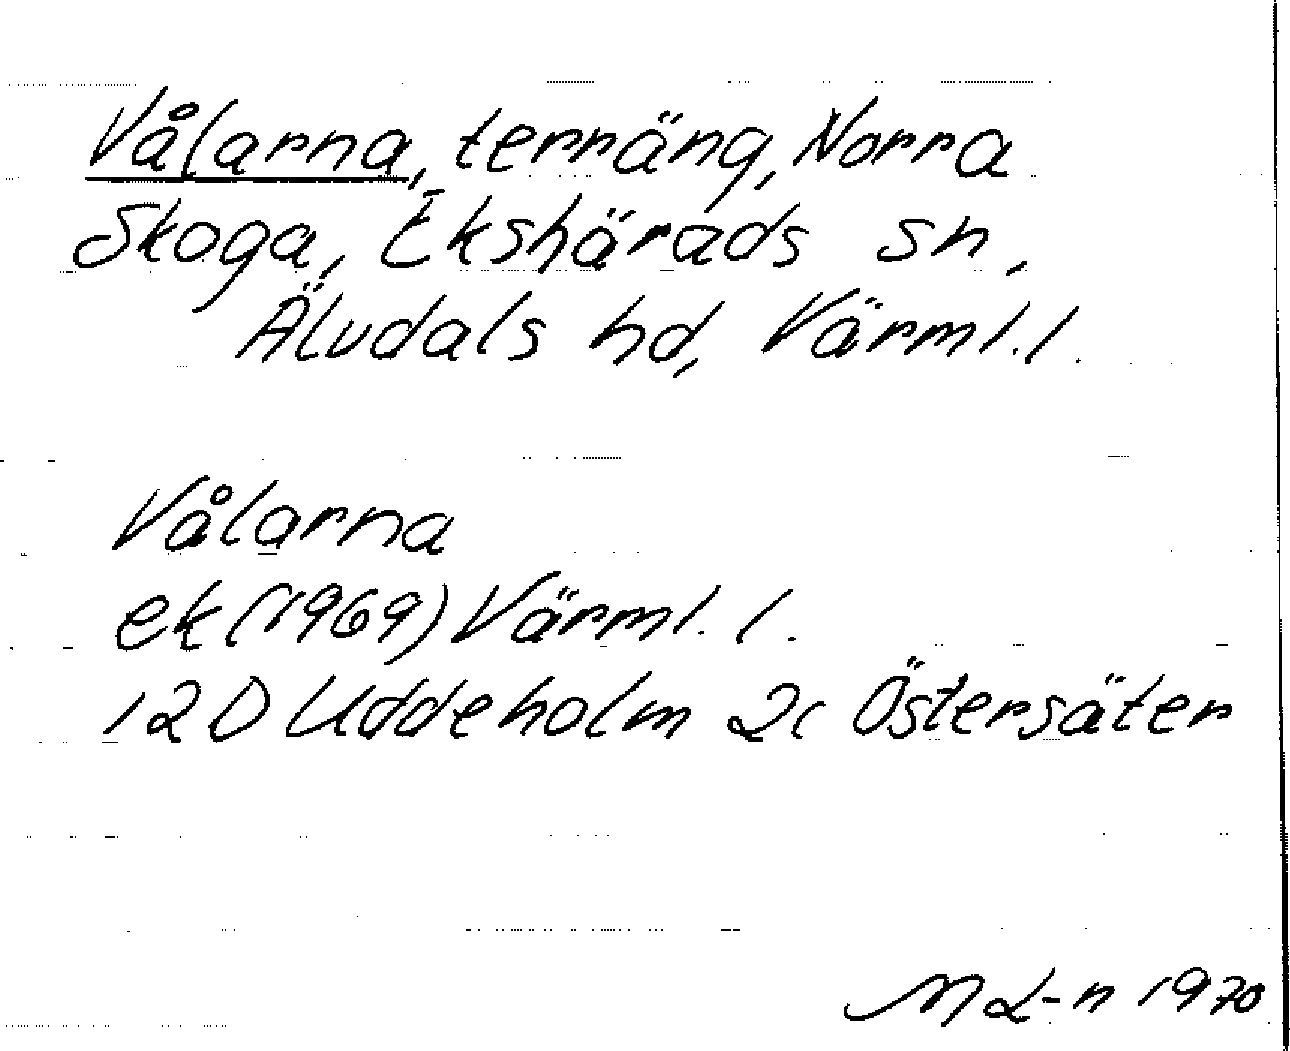 Vålarna, terräng, Norra
Skoga, Ekshärads sn,
Älvdals hd, Värml.l.
Vålarna
ek (1969) Värml. l.
12D Uddeholm 2c Östersäter
M L-n 1970